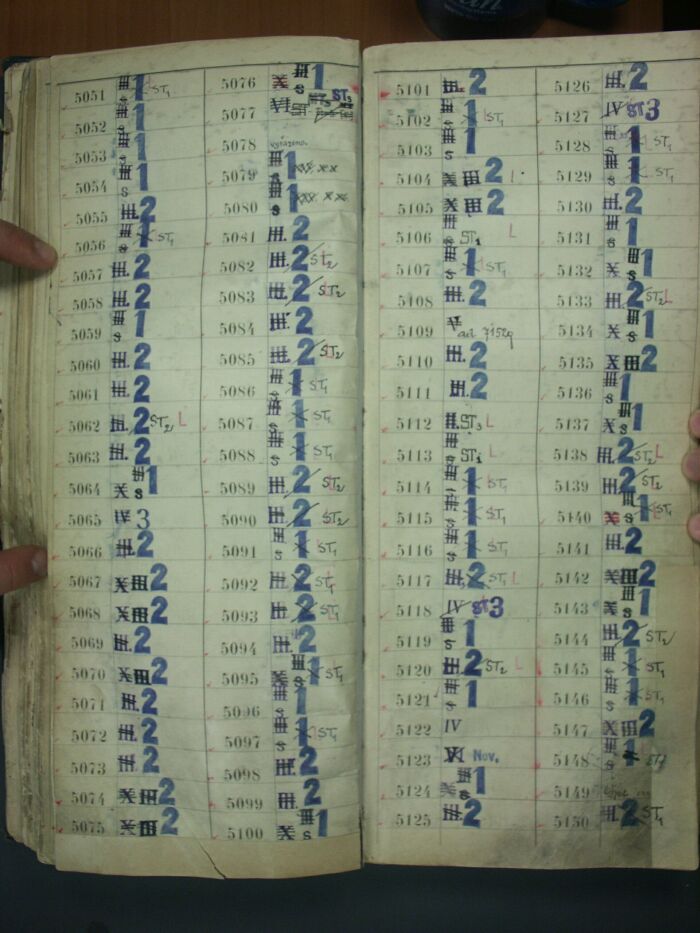 5051 III s 1 ST1
5052 III s 1
5053 III s 1
5054 III s 1
5055 III. 2
5056 III s 1 ST1
5057 III. 2
5058 III. 2
5059 III s 1
5060 III. 2
5061 III. 2
5062 III. 2 ST2 L
5063 III. 2
5064 X III s 1
5065 IV 3
5066 III. 2
5067 X III 2
5068 X III 2
5069 III. 2
5070 X III 2
5071 III. 2
5072 III. 2
5073 III. 2
5074 X III 2
5075 X III 2
5076 X III s 1
5077 VI ST3
5078
5079 III s 1
5080 III s 1
5081 III. 2
5082 III. 2 ST2
5083 III. 2 ST2
5084 III. 2
5085 III. 2 ST2
5086 III s 1 ST1
5087 III s 1 ST1
5088 III s 1 ST1
5089 III. 2 ST2
5090 III. 2 ST2
5091 III s 1 ST1
5092 III. 2 ST1
5093 III. 2 ST1
5094 III. 2
5095 X III s 1 ST1
5096 III s 1
5097 III s 1 ST1
5098 III. 2
5099 III. 2
5100 X III s 1
5101 III. 2
5102 III s 1 ST1
5103 III s 1
5104 X III 2 L
5105 X III 2
5106 III s ST1 L
5107 III s 1 ST1
5108 III. 2
5109 VI ad 7152g
5110 III. 2
5111 III. 2
5112 II. ST3 L
5113 III s ST1 L
5114 III s 1 ST1
5115 III s 1 ST1
5116 III s 1 ST1
5117 III. 2 ST1 L
5118 IV ST3
5119 III s 1
5120 III. 2 ST2 L
5121 III s 1
5122 IV
5123 XI Nov.
5124 X III s 1
5125 III. 2
5126 III. 2
5127 IV ST3
5128 III s 1 ST1
5129 III s 1 ST1
5130 III. 2
5131 III s 1
5132 X III s 1
5133 III. 2 ST2 L
5134 X III s 1
5135 X III 2
5136 III s 1
5137 X III s 1
5138 III. 2 ST2 L
5139 III. 2 ST2
5140 X III s 1 ST1
5141 III. 2
5142 X III 2
5143 X III s 1
5144 III. 2 ST2
5145 III s 1 ST1
5146 III s 1 ST1
5147 X III 2
5148 III s 1 ST1
5149
5150 III. 2 ST1